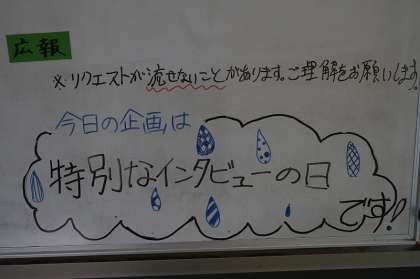 広報
※リクエストが流せないことがあります。ご理解をお願いします。
今日の企画は
特別なインタビューの日
です!!